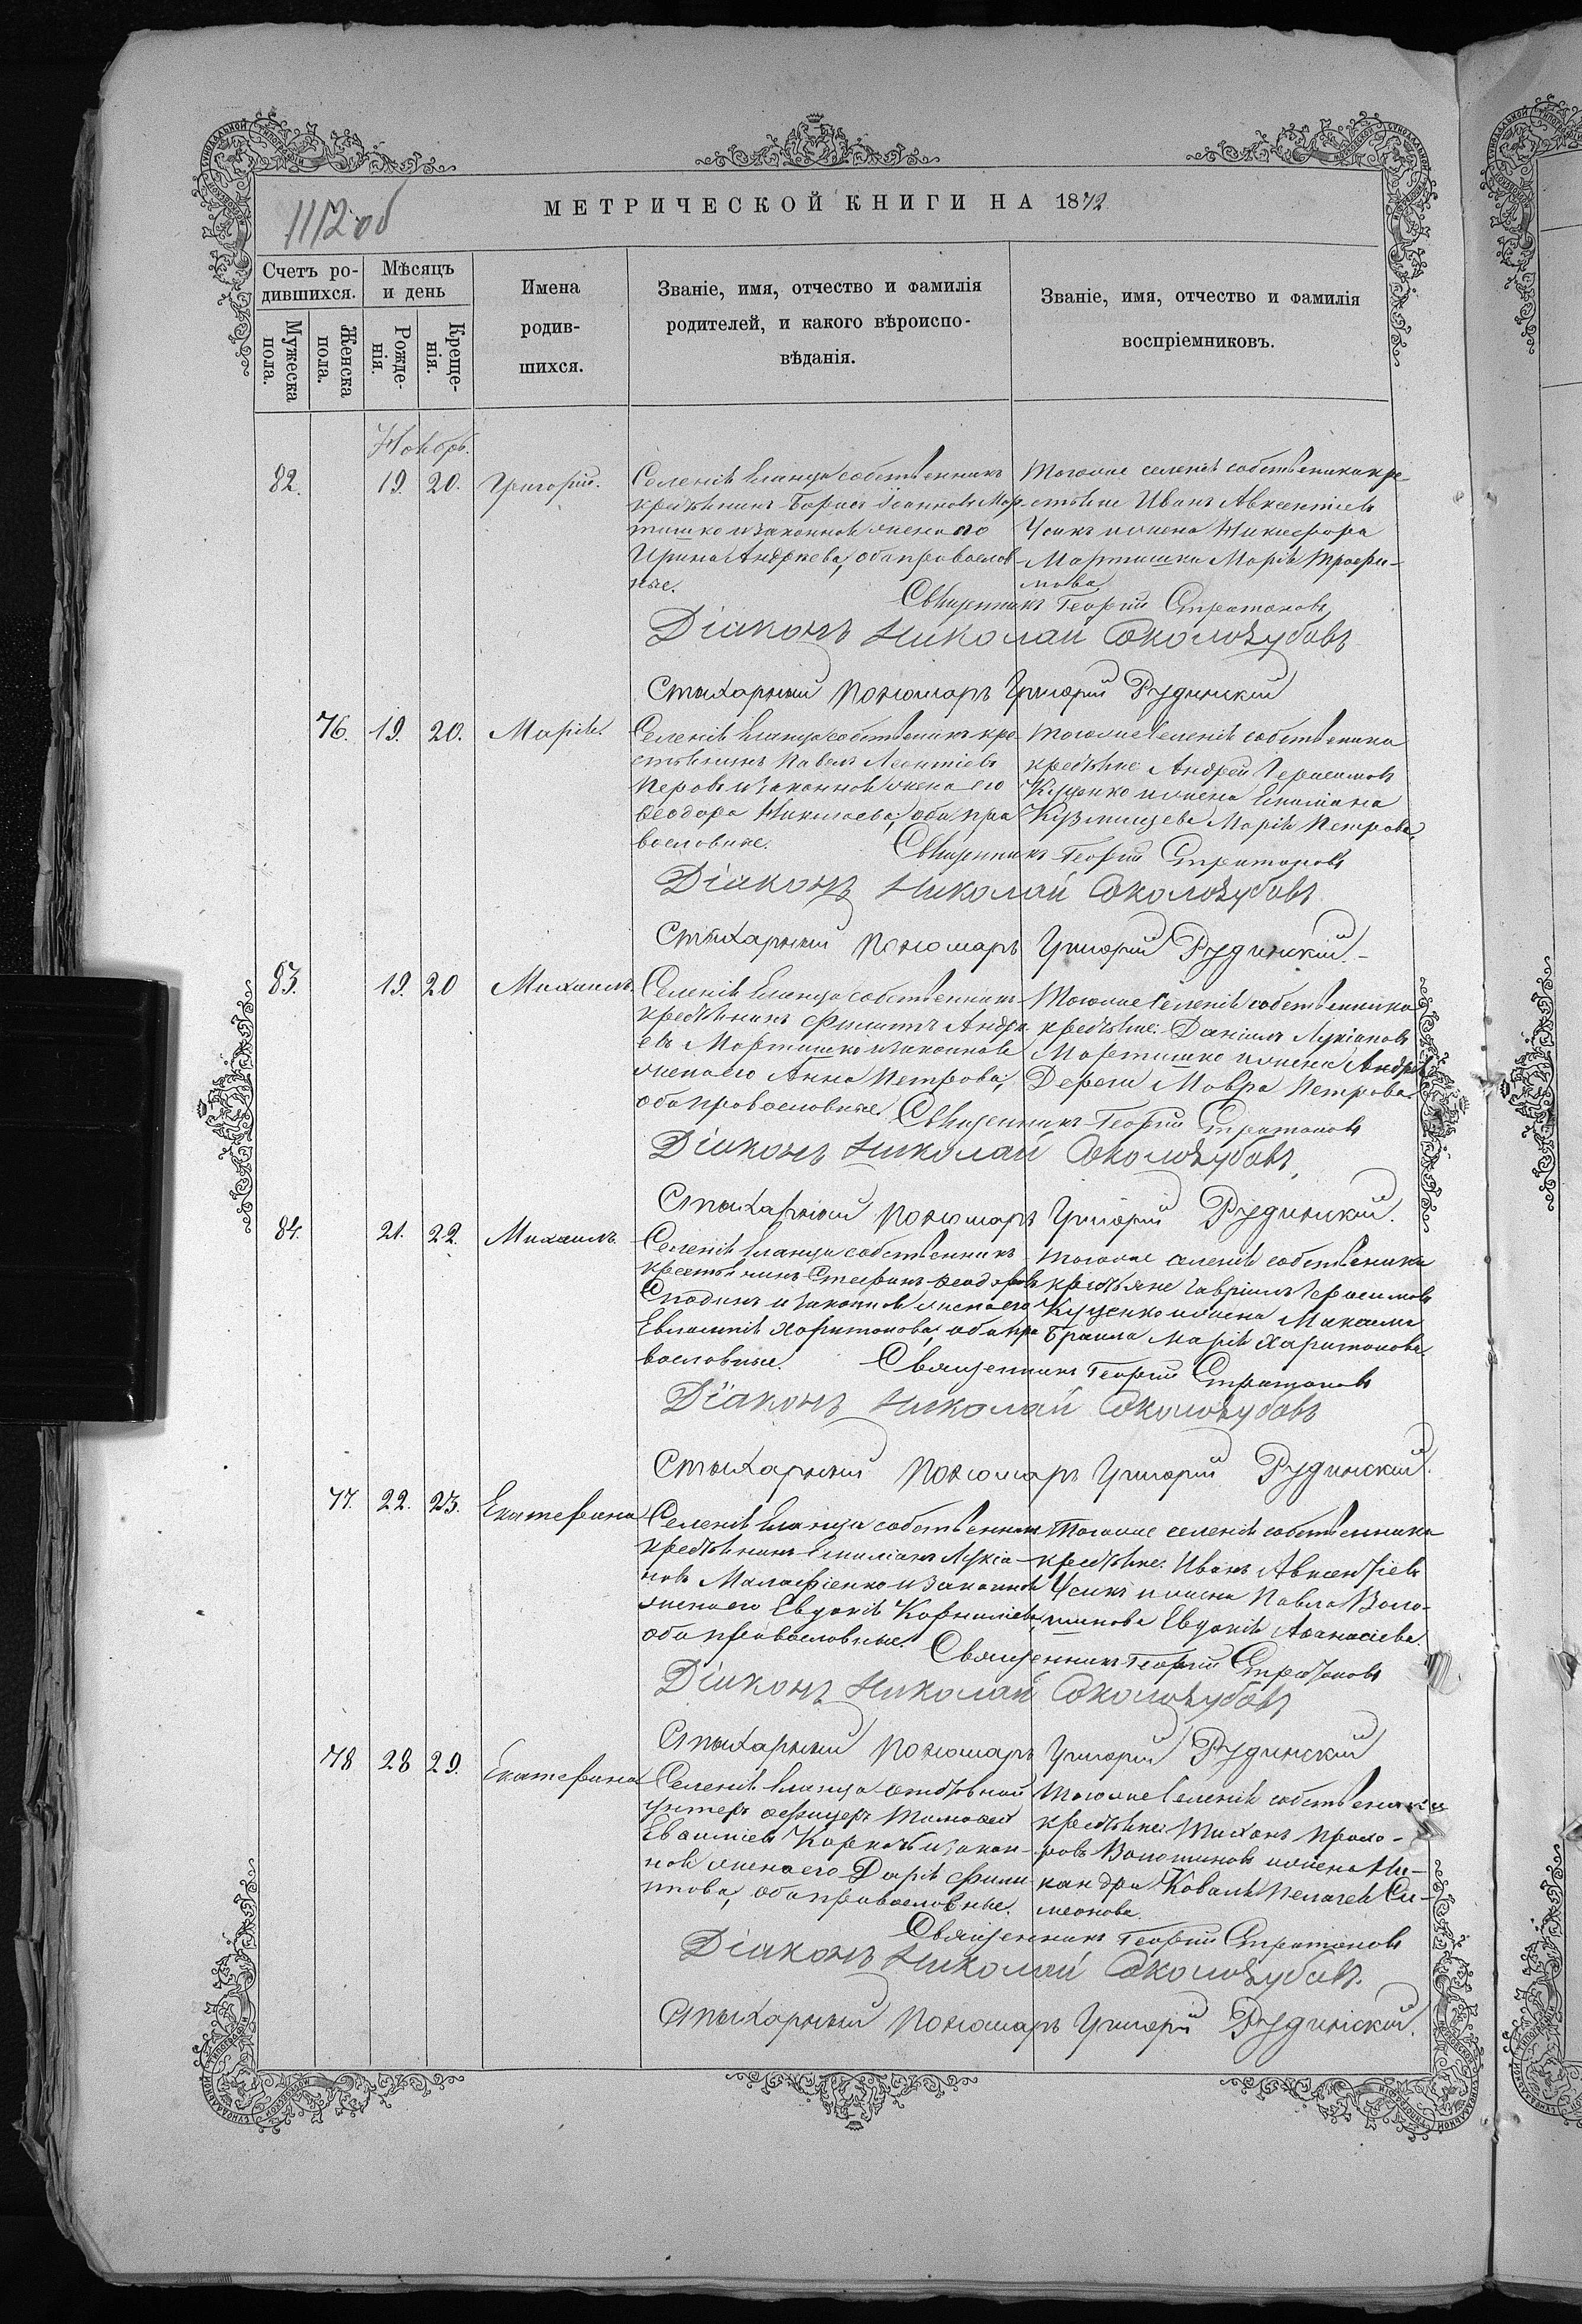 1112 об
МЕТРИЧЕСКОЙ КНИГИ НА 1872
Счетъ ро-
дившихся.
Мѣсяцъ
и день
Имена
родив-
шихся.
Званіе, имя, отчество и фамилія
родителей, и какого вѣроиспо-
вѣданія.
Званіе, имя, отчество и фамилія
воспріемниковъ.
Мужеска
пола.
Женска
пола.
Рожде-
нія.
Креще-
нія.
Ноябрь.
82. 19. 20. Григорій.
Селенія Еланца собственникъ
крестьянинъ Борисъ Іоанновъ Мар-
тишко и законная жена его
Ирина Андреева, оба православ-
ные.
Тогоже селенія собственники кре-
стьяне Иванъ Авксентіевъ
Усикъ и жена Никифора
Мартишки Марія Трофи-
мова
Священникъ Георгій Стратоновъ
Діаконъ Николай Околозубовъ
Стихарный пономарь Григорій Рудинскій
76. 19. 20. Марія.
Селенія Еланца собственникъ кре
стьянинъ Павелъ Леонтіевъ
Перовъ и законная жена его
Ѳеодора Николаева, оба пра
вославные.
Тогоже Селенія собственники
крестьяне Андрей Герасимовъ
Куценко и жена Емиліана
Кузмищева Марія Петрова.
Священникъ Георгій Стратоновъ
Діаконъ Николай Околозубовъ
Стихарный пономарь Григорій Рудинскій.
83. 19. 20 Михаилъ.
Селенія Еланца собственникъ
крестьянинъ Филиппъ Андре
евъ Мартишко и законная
жена его Анна Петрова,
оба православные.
Тогоже Селенія собственники
крестьяне: Даніилъ Лукіановъ
Мартишко и жена Андрея
Дереги Мавра Петрова.
Священникъ Георгій Стратоновъ
Діаконъ Николай Околозубовъ,
Стихарный пономарь Григорій Рудинскій.
84. 21. 22. Михаилъ.
Селенія Еланца собственникъ
крестьянинъ Стефанъ Ѳеодоровъ
Сподинъ и законная жена его
Евлампія Харитонова, оба пра
вославные.
Тогоже селенія собственники
крестьяне Гавріилъ Герасимовъ
Куценко и жена Максима
Браила Марія Харитонова.
Священникъ Георгій Стратоновъ
Діаконъ Николай Околозубовъ
Стихарный пономарь Григорій Рудинскій.
77. 22. 23. Екатерина
Селенія Еланца собственникъ
крестьянинъ Емиліанъ Лукіа-
новъ Малафіенко и законная
жена его Евдокія Корниліева,
оба православные.
Тогоже селенія собственники
крестьяне: Иванъ Авксентіевъ
Усикъ и жена Павла Воло-
шинова Евдокія Аѳанасіева.
Священникъ Георгій Стратоновъ
Діаконъ Николай Околозубовъ
Стихарный пономарь Григорій Рудинскій
78 28 29. Екатерина
Селенія Еланца отставной
унтеръ офицеръ Тимоѳей
Евѳиміевъ Коркачъ и закон-
ная жена его Дарія Филип-
пова, оба православные.
Тогоже Селенія собственники
крестьяне: Тихонъ Прохо-
ровъ Волошиновъ и жена Ни-
кандра Коваля Пелагея Си-
меонова.
Священникъ Георгій Стратоновъ
Діаконъ Николай Околозубовъ.
Стихарный пономарь Григорій Рудинскій.